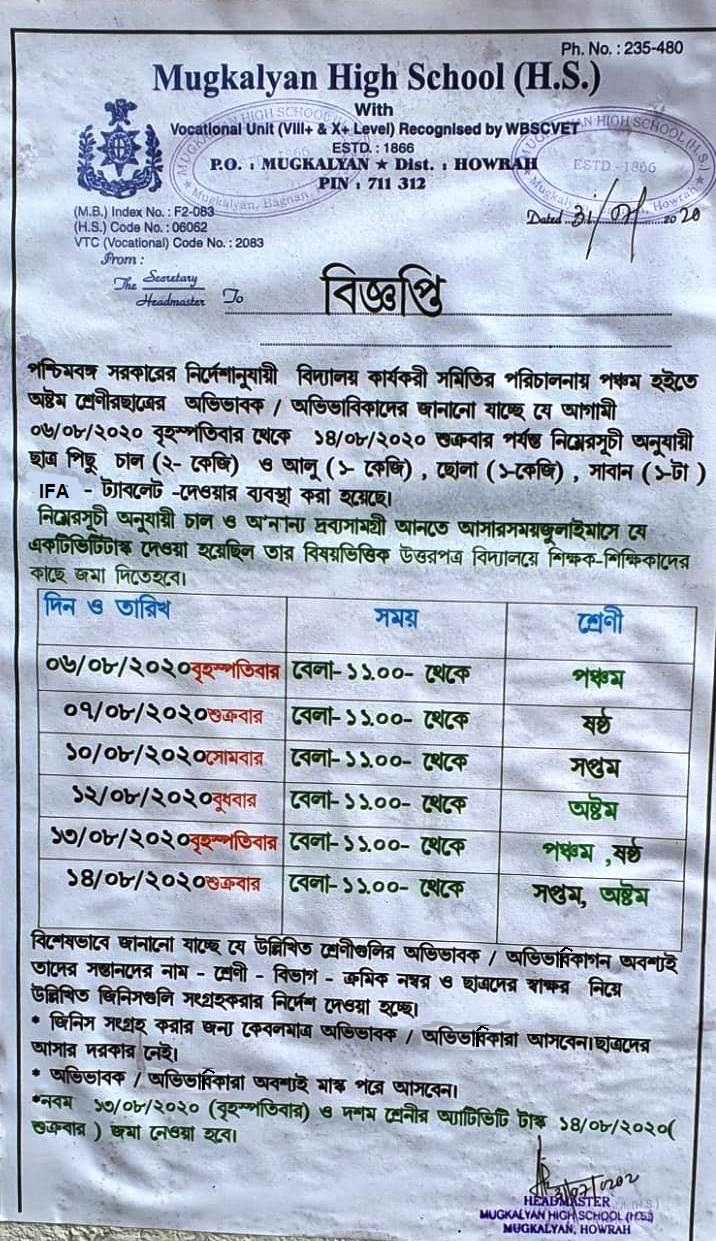 Ph. No. : 235-480
Mugkalyan High School (H.S.)
With
Vocational Unit (VIII+ & X+ Level) Recognised by WBSCVET
ESTD. : 1866
P.O. : MUGKALYAN ★ Dist. : HOWRAH
PIN : 711 312
(M.B.) Index No. : F2-083
(H.S.) Code No. : 06062
VTC (Vocational) Code No. : 2083
Dated 31/07/2020
From :
The Secretary
Headmaster
To
বিজ্ঞপ্তি
পশ্চিমবঙ্গ সরকারের নির্দেশানুযায়ী বিদ্যালয় কার্যকরী সমিতির পরিচালনায় পঞ্চম হইতে
অষ্টম শ্রেণীরছাত্রের অভিভাবক / অভিভাবিকাদের জানানো যাচ্ছে যে আগামী
০৬/০৮/২০২০ বৃহস্পতিবার থেকে ১৪/০৮/২০২০ শুক্রবার পর্যন্ত নিম্নেরসূচী অনুযায়ী
ছাত্র পিছু চাল (২- কেজি) ও আলু (১- কেজি) , ছোলা (১-কেজি) , সাবান (১-টা)
IFA - ট্যাবলেট -দেওয়ার ব্যবস্থা করা হয়েছে।
নিম্নেরসূচী অনুযায়ী চাল ও অন্যান্য দ্রব্যসামগ্রী আনতে আসারসময়জুলাইমাসে যে
একটিভিটিটাস্ক দেওয়া হয়েছিল তার বিষয়ভিত্তিক উত্তরপত্র বিদ্যালয়ে শিক্ষক-শিক্ষিকাদের
কাছে জমা দিতেহবে।
দিন ও তারিখ সময় শ্রেণী
০৬/০৮/২০২০বৃহস্পতিবার বেলা- ১১.০০- থেকে পঞ্চম
০৭/০৮/২০২০শুক্রবার বেলা- ১১.০০- থেকে ষষ্ঠ
১০/০৮/২০২০সোমবার বেলা- ১১.০০- থেকে সপ্তম
১২/০৮/২০২০বুধবার বেলা- ১১.০০- থেকে অষ্টম
১৩/০৮/২০২০বৃহস্পতিবার বেলা- ১১.০০- থেকে পঞ্চম ,ষষ্ঠ
১৪/০৮/২০২০শুক্রবার বেলা- ১১.০০- থেকে সপ্তম, অষ্টম
বিশেষভাবে জানানো যাচ্ছে যে উল্লিখিত শ্রেণীগুলির অভিভাবক / অভিভাবিকাগন অবশ্যই
তাদের সন্তানদের নাম - শ্রেণী - বিভাগ - ক্রমিক নম্বর ও ছাত্রদের স্বাক্ষর নিয়ে
উল্লিখিত জিনিসগুলি সংগ্রহকরার নির্দেশ দেওয়া হচ্ছে।
* জিনিস সংগ্রহ করার জন্য কেবলমাত্র অভিভাবক / অভিভাবিকারা আসবেন।ছাত্রদের
আসার দরকার নেই।
* অভিভাবক / অভিভাবিকারা অবশ্যই মাস্ক পরে আসবেন।
*নবম ১৩/০৮/২০২০ (বৃহস্পতিবার) ও দশম শ্রেণীর অ্যাটিভিটি টাস্ক ১৪/০৮/২০২০(
শুক্রবার ) জমা নেওয়া হবে।
31/07/2020
HEADMASTER
MUGKALYAN HIGH SCHOOL (H.S.)
MUGKALYAN, HOWRAH